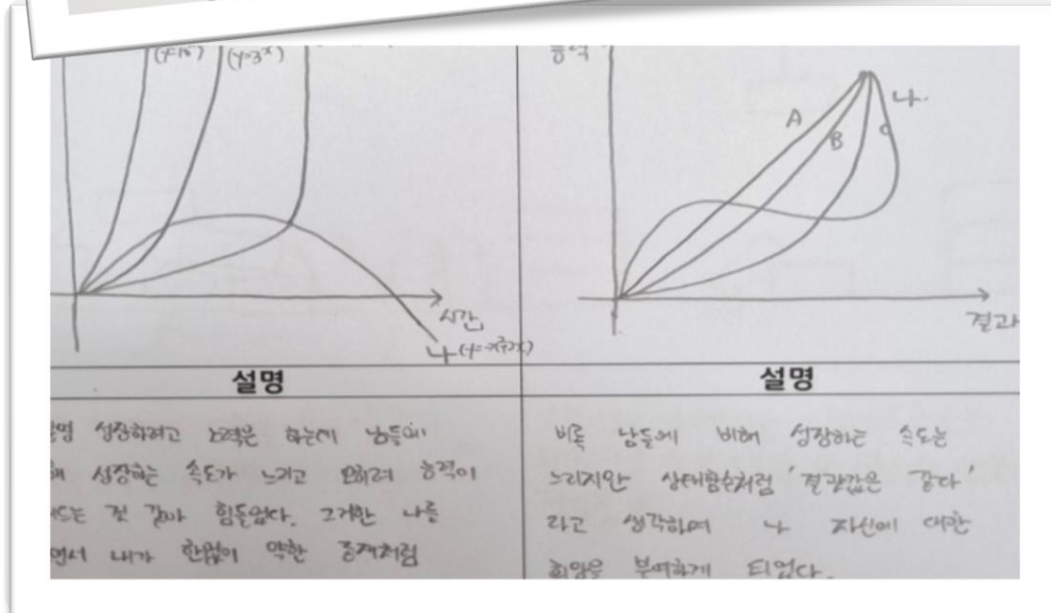 (y=3ˣ)
시간
나 (y=-x²+2x)
설명
성장하려고 노력은 하는데 남들에
해 성장하는 속도가 느리고 오히려 능력이
드는 것 같아 힘들었다. 그러한 나를
면서 내가 한없이 약한 존재처럼
능력
A
B
C
나.
결과
설명
비록 남들에 비해 성장하는 속도는
느리지만 상태함수처럼 '결괏값은 같다'
라고 생각하며 나 자신에 대한
희망을 부여하게 되었다.